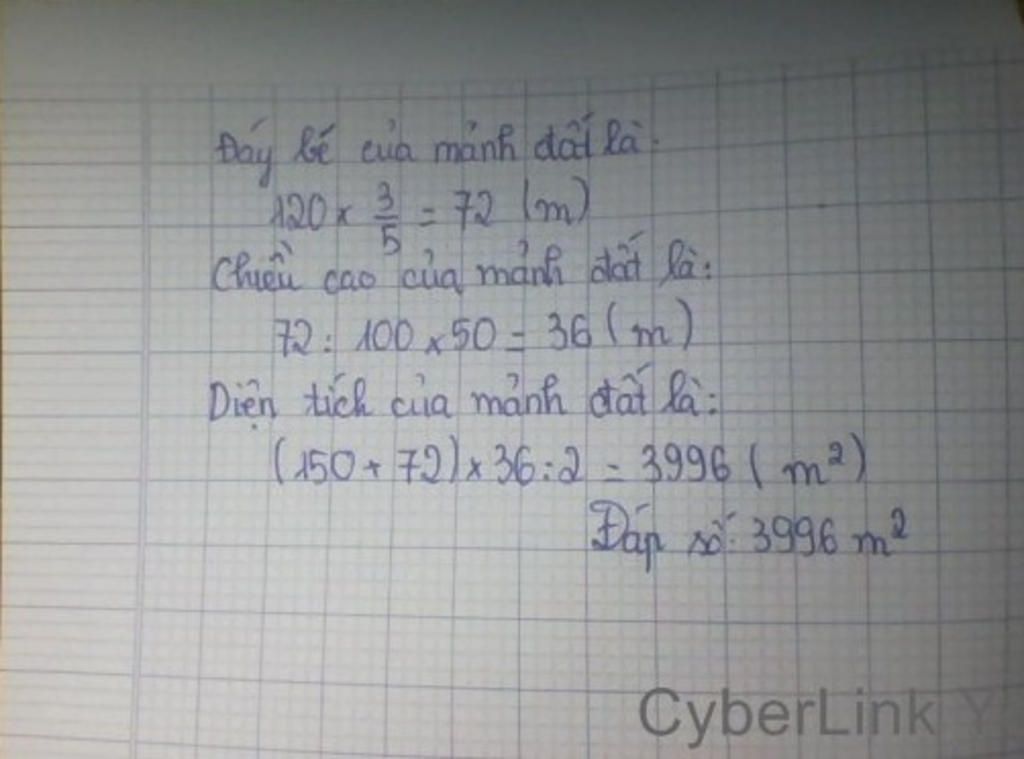 Đáy bé của mảnh đất là:
120 × 3/5 = 72 (m)
Chiều cao của mảnh đất là:
72 : 100 × 50 = 36 (m)
Diện tích của mảnh đất là:
(150 + 72) × 36 : 2 = 3996 (m²)
Đáp số: 3996 m²
CyberLink Y